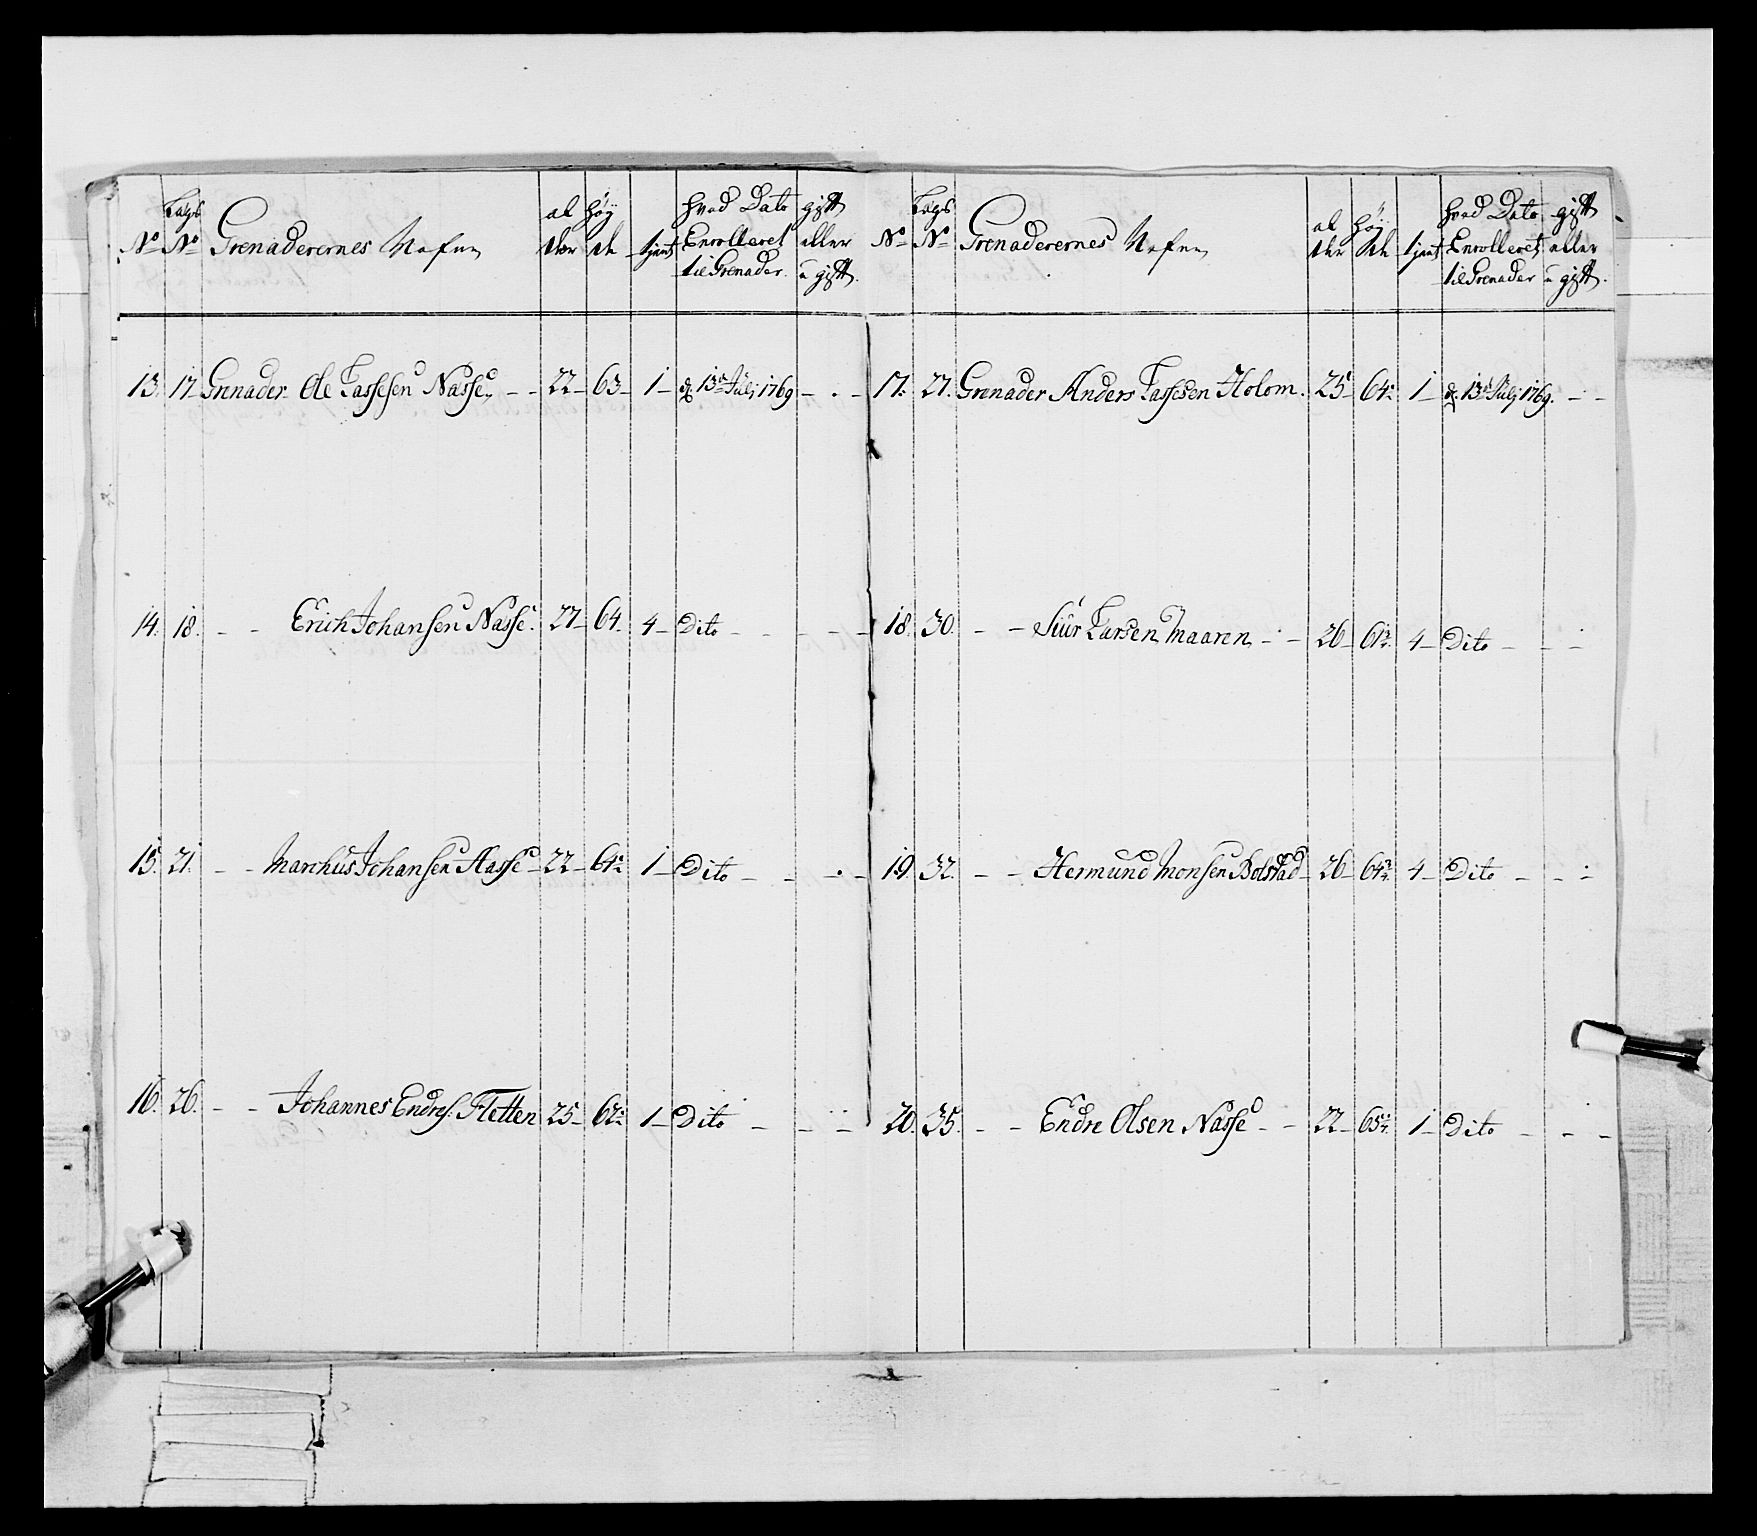 No Lægs No Grenaderernes Nafne al der Høy de tjent hvad Dato Enrolleret til Grenader gift eller u gift.
13. 17 Grnader Ole Lassesen Nasse 22 63 1 d. 13de Julj 1769
14. 18. Erich Johansen Nasse. 27 64 4 Dito
15. 21. Marchus Johansen Hasse 22 64 1 Dito
16. 26. Johannes Endres: Fletten 25 62 1 Dito
No Lægs No Grenaderernes Nafne al der Høy de tjent hvad Dato Enrolleret til Grenader gift eller u gift.
17. 27. Grenader Anders Lassesen Holom. 25 64 1 d. 13de Julj 1769.
18. 30. Siur Larsen Maaren 26 61 4 Dito
19. 32. Hermund Monsen Bolstad 26 64 4 Dito
20. 35. Endre Olsen Nasse 22 65 1 Dito